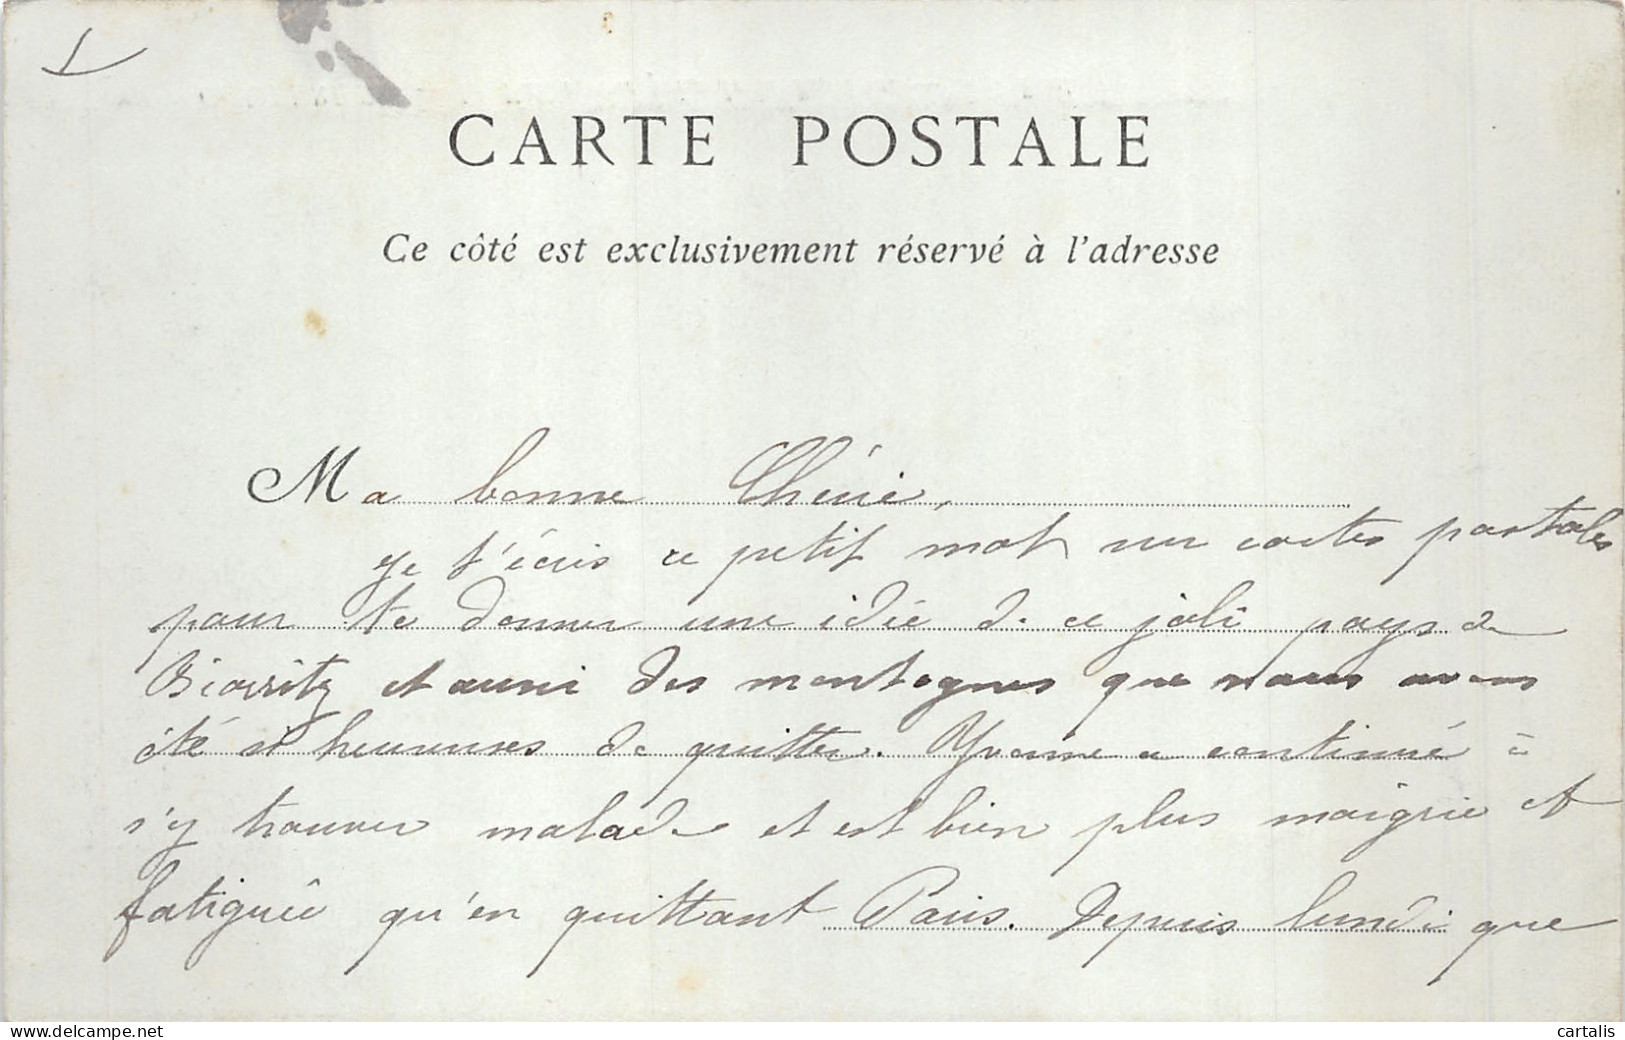 CARTE POSTALE
Ce côté est exclusivement réservé à l'adresse
Ma bonne Chérie,
je t'écris ce petit mot sur cartes postales
pour te donner une idée de ce joli pays de
Biarritz et aussi des montagnes que nous avons
été si heureuses de quitter. Yvonne a continué à
s'y trouver malade et est bien plus maigrie et
fatiguée qu'en quittant Paris. Depuis lundi que
cartalis